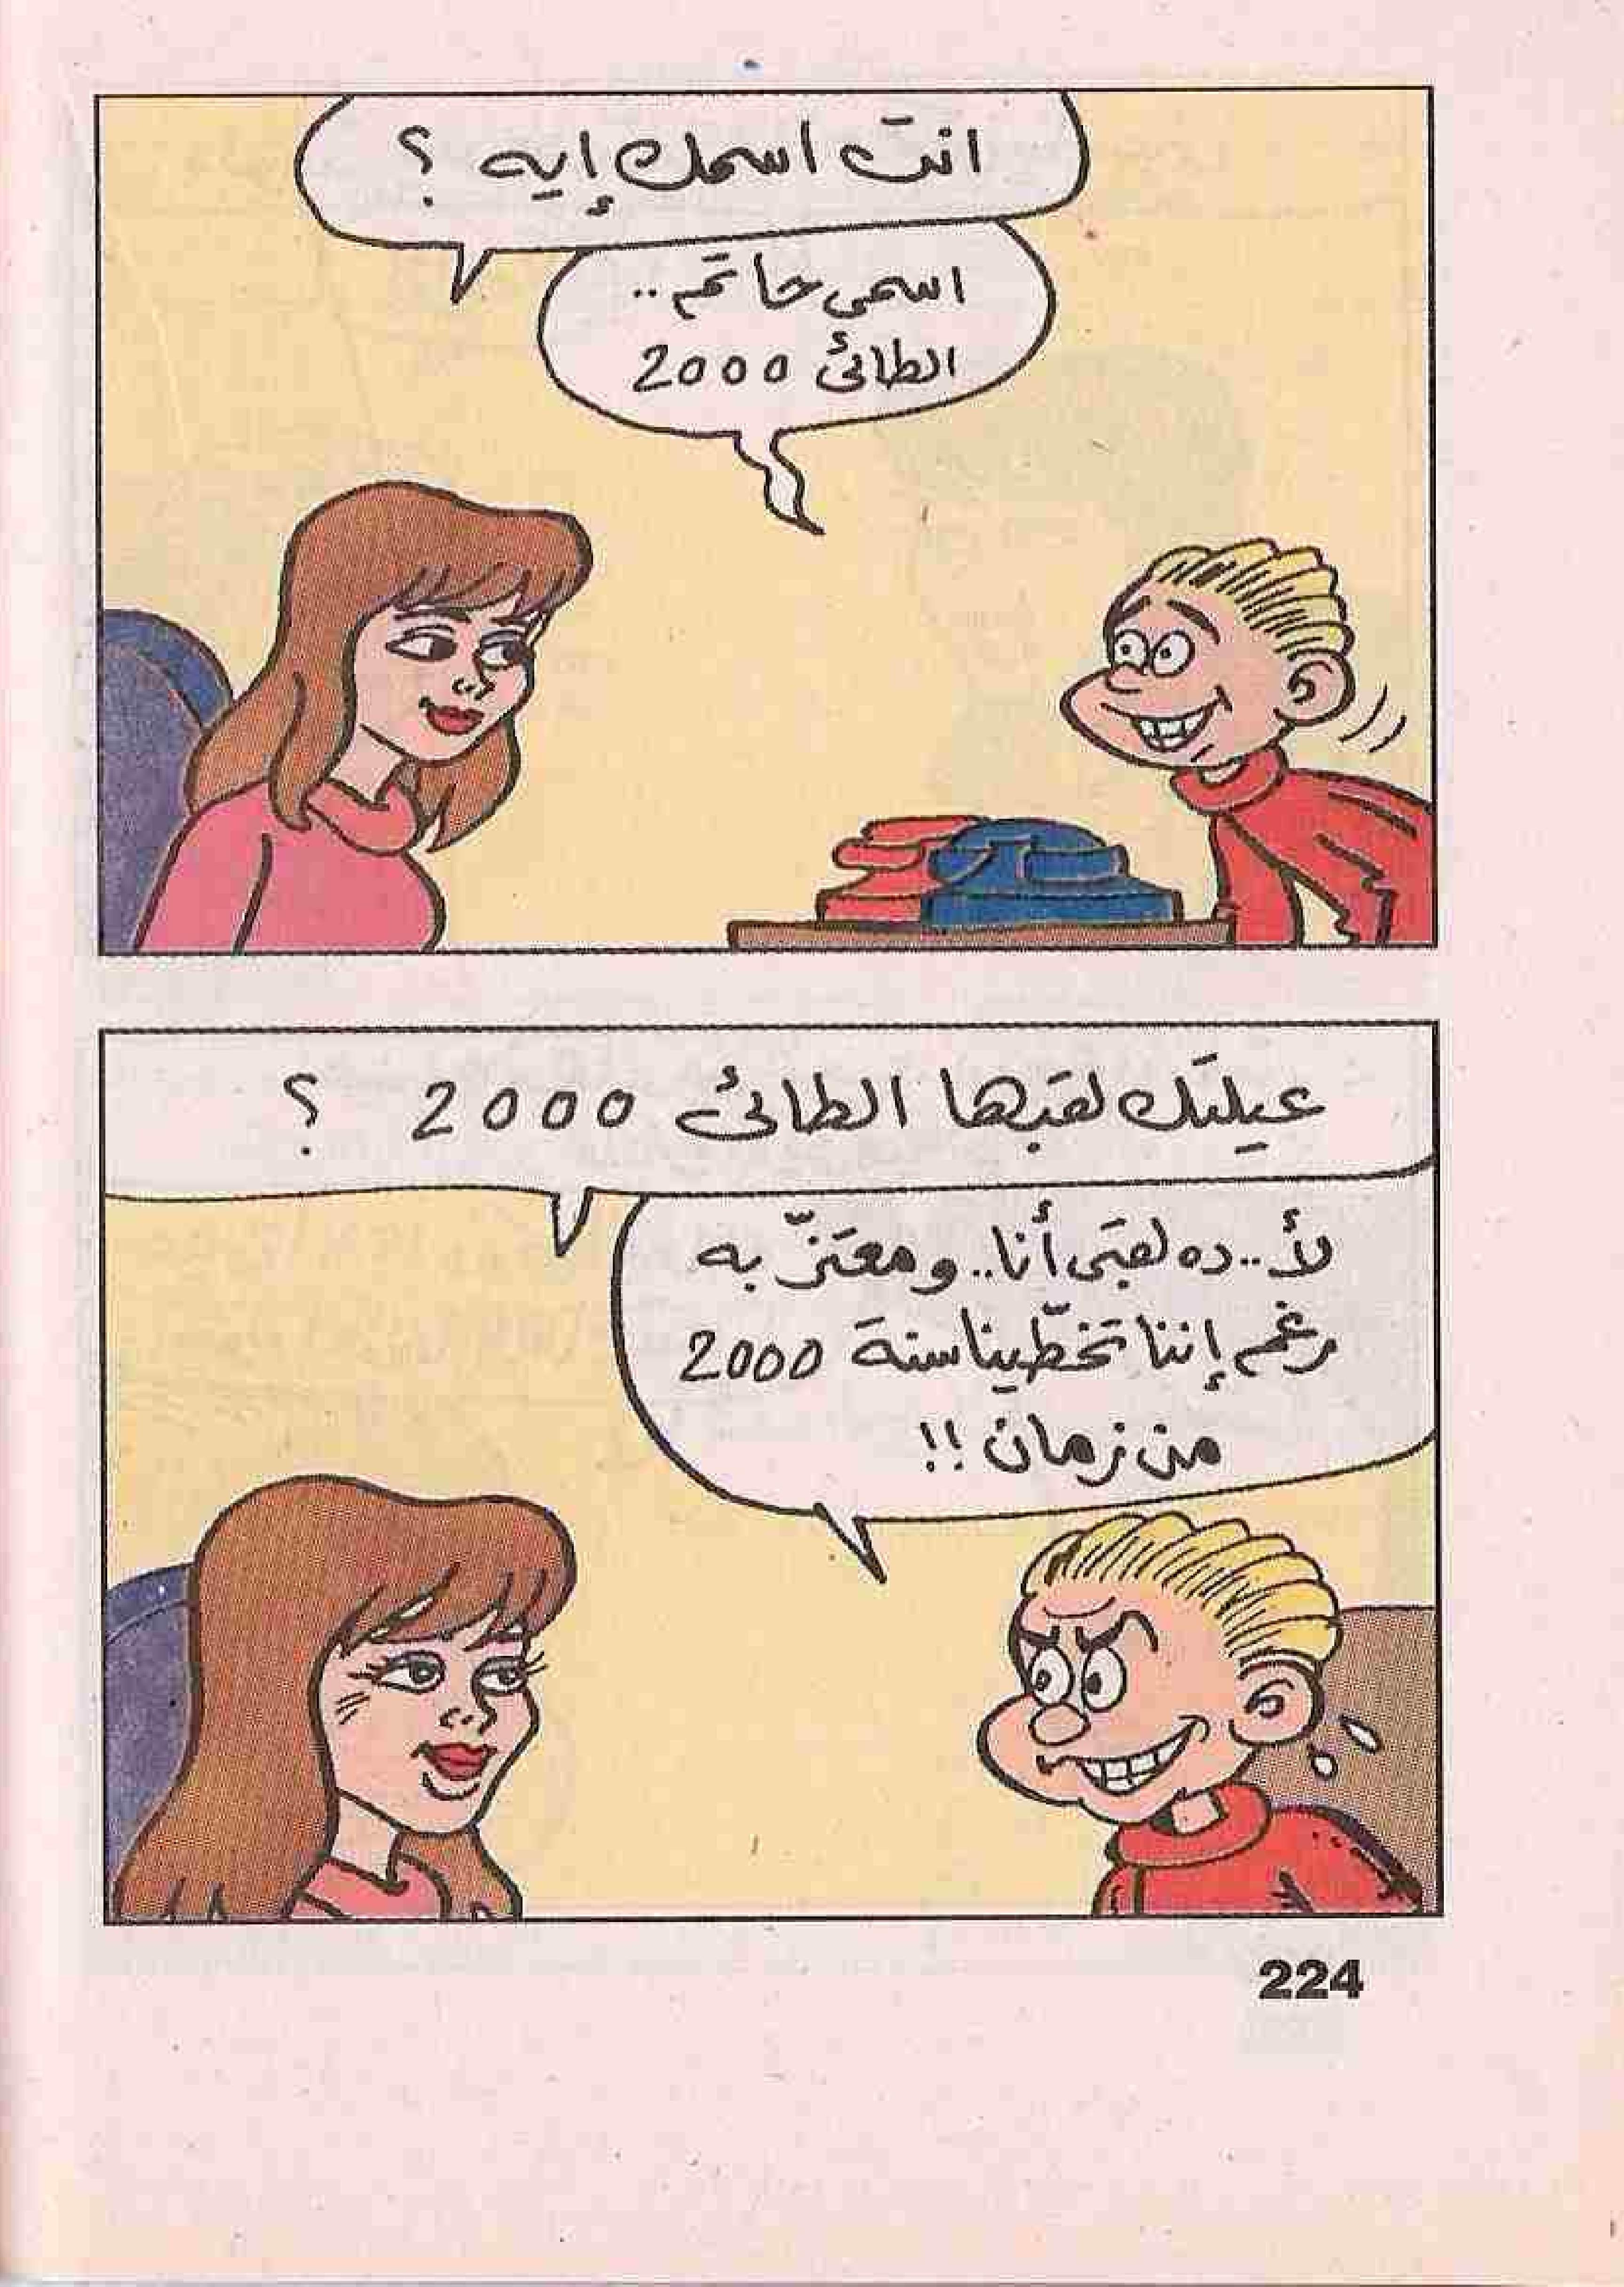 انت اسمك إيه ؟
اسمى حاتم..
الطائى 2000
عيلتك لقبها الطائى 2000 ؟
لأ.. ده لقبى أنا.. ومعتزّ به
رغم إننا تخطّينا سنة 2000
من زمان !!
224